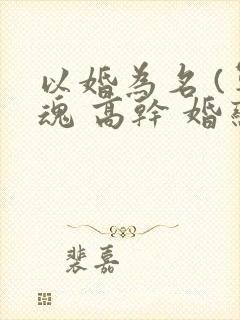 以婚為名 (
魂 高幹 婚
裴嘉